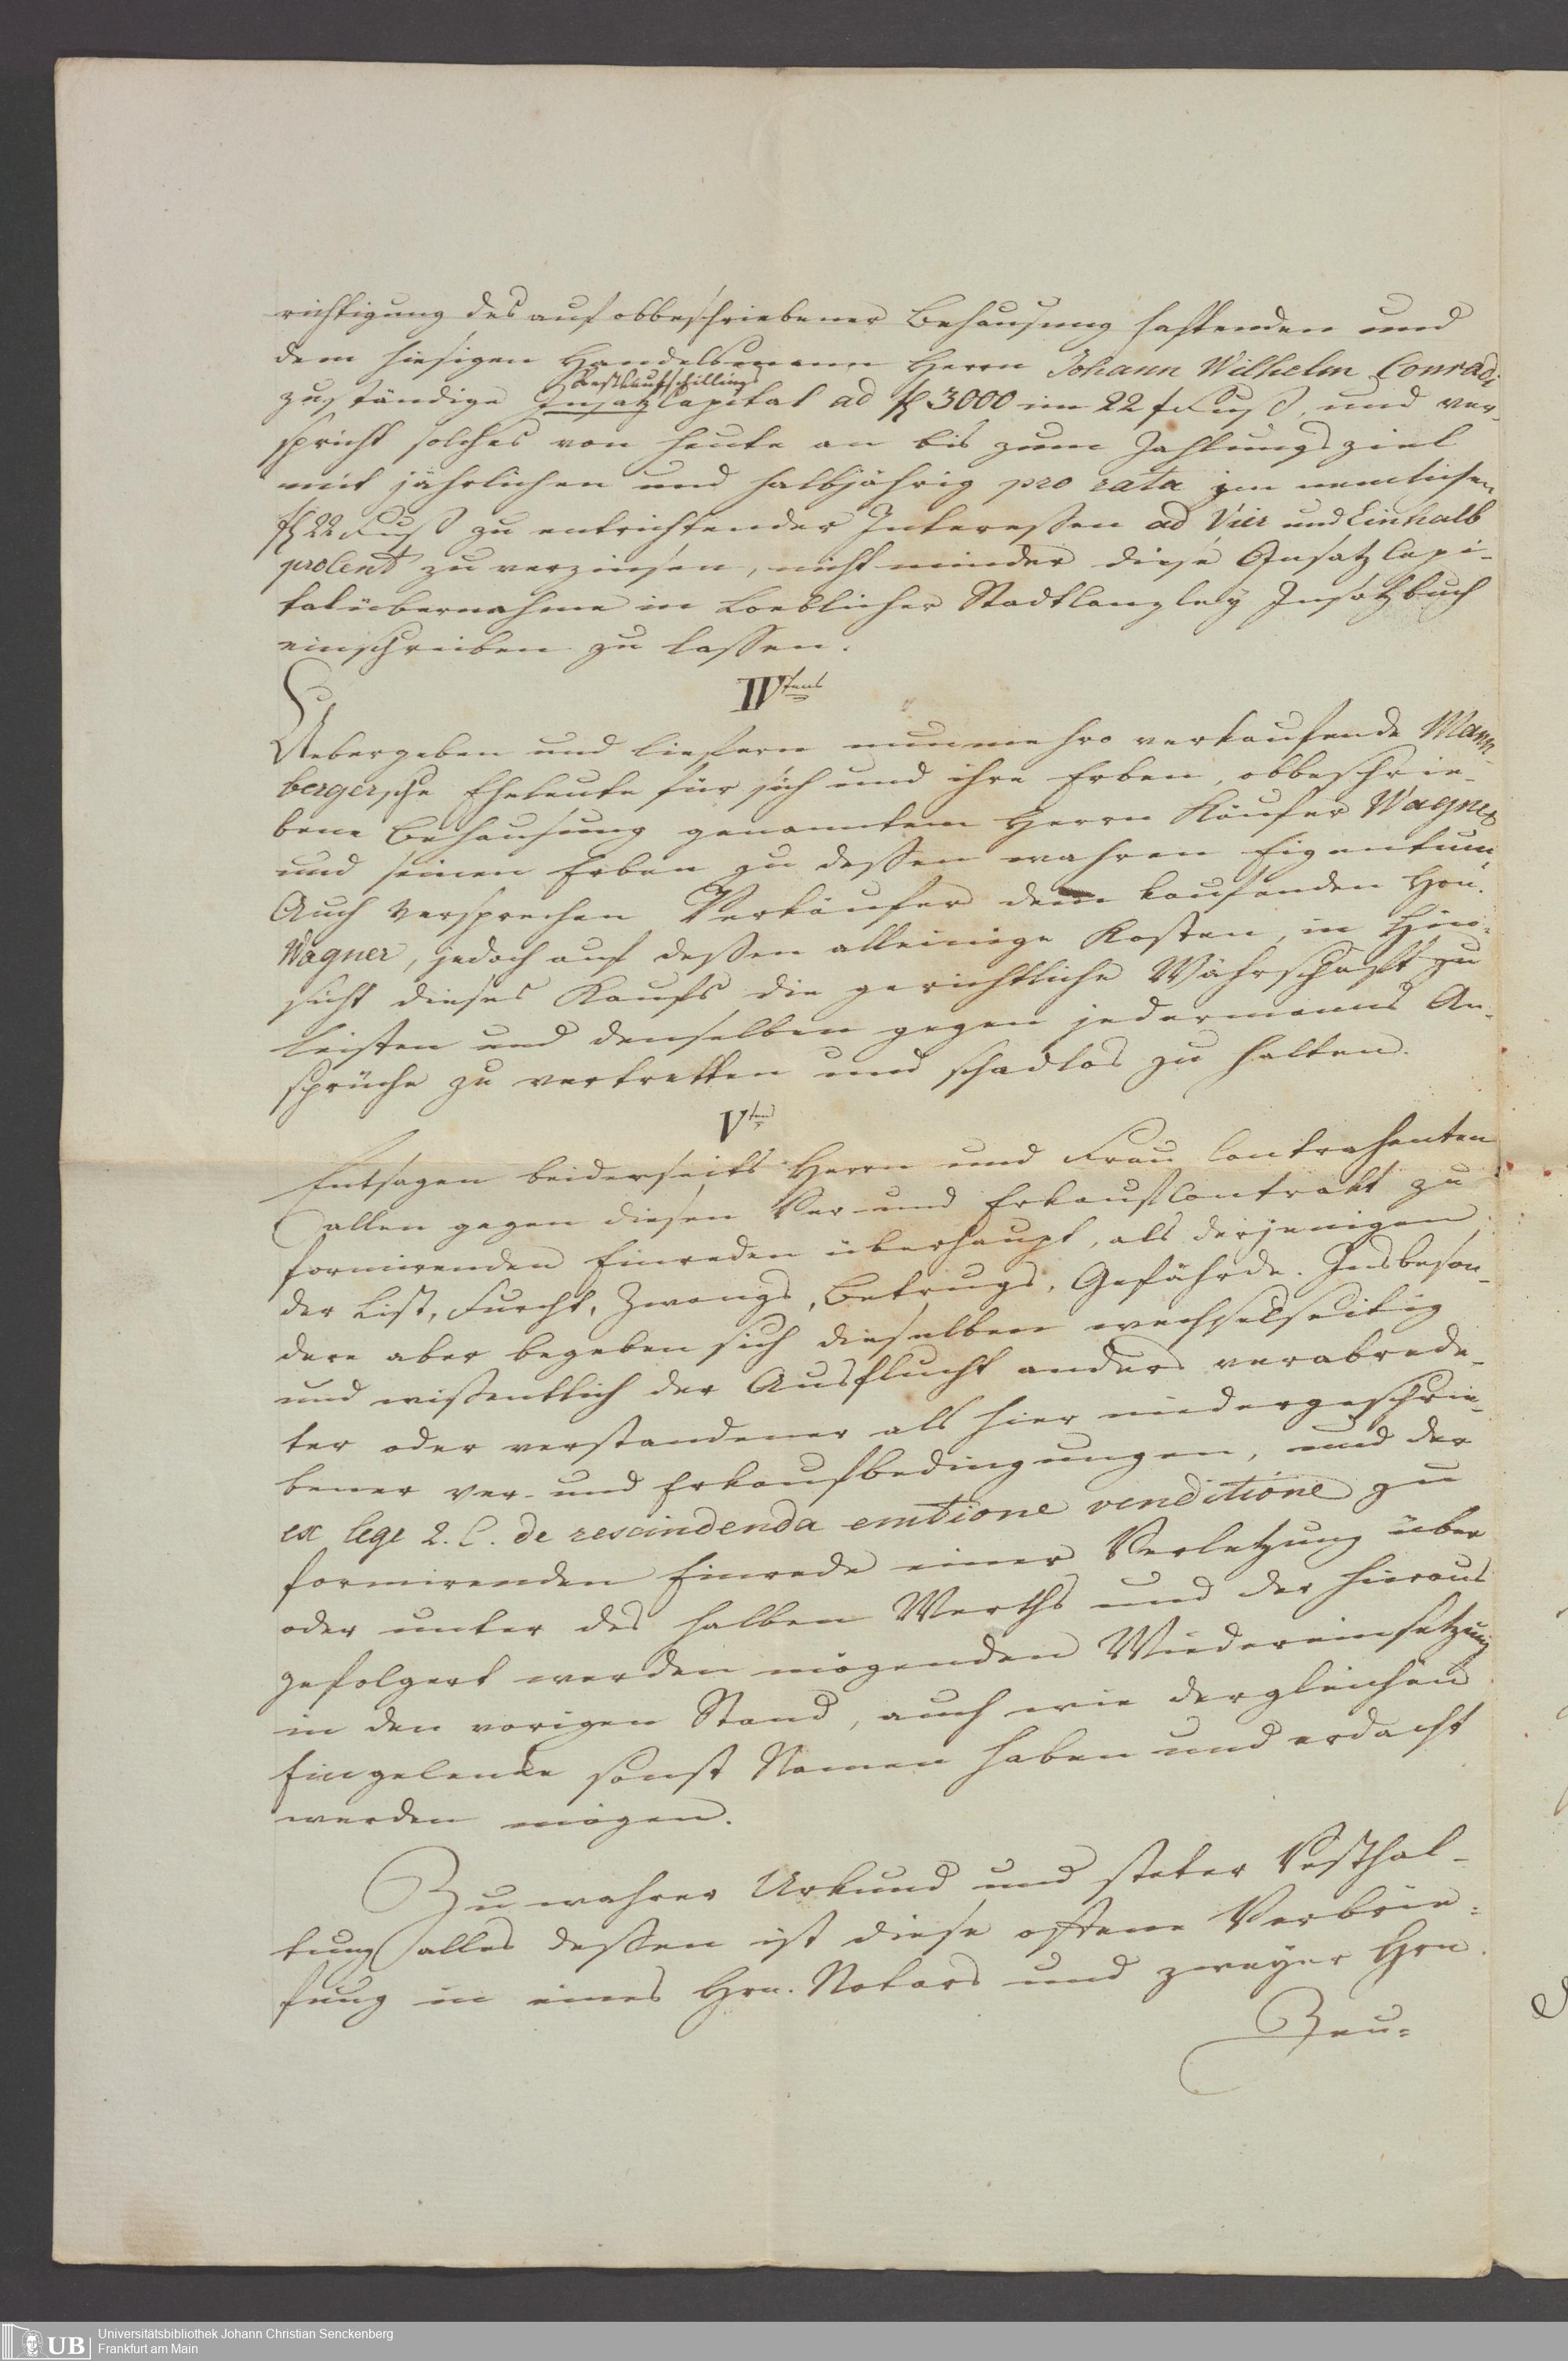 richtigung des auf obbeschriebener Behausung haftenden und
dem hiesigen Handelsmann Herrn Johann Wilhelm Conradi
Restkaufschillings
zuständige Insatz Capital ad fl 3000 im 22 f Fuß, und ver-
spricht solches von heute an bis zum Zahlungsziel
mit jährlichen und halbjährig pro rata im nemlichen
fl 22 Fuß zu entrichtender Interessen ad Vier und Einhalb
proCent zu verzinsen, nicht minder diese Insatz Capi-
talübernahme in Loeblicher Stadtkanzley Insatzbuch
einschreiben zu lassen.
IVtens
Uebergeben und liefern nunmehro verkaufende Mann-
bergersche Eheleute für sich und ihre Erben, obbeschrie-
bene Behausung genanntem Herrn Käufer Wagner
und seinen Erben zu dessen wahren Eigentum.
Auch versprechen Verkäufer dem kaufenden Hrn.
Wagner, jedoch auf dessen alleinige Kosten, in Hin-
sicht dieses Kaufs die gerichtliche Währschaft zu
leisten und denselben gegen jedermanns An-
sprüche zu vertretten und schadlos zu halten.
Vtens
Entsagen beiderseits Herrn und Frau Contrahenten
allen gegen diesen Ver- und Erkaufcontrakt zu
formirenden Einreden überhaupt, als derjenigen
der List, Furcht, Zwangs, Betrugs, Gefährde. Insbeson-
dere aber begeben sich dieselben wechselseitig
und wissentlich der Ausflucht anders verabrede-
ter oder verstandener als hier niedergeschrie-
bener Ver- und Erkaufbedingungen, und der
ex lege 2. C. de rescindenda emtione venditione zu
formirenden Einrede einer Verletzung über
oder unter des halben Werths und der hieraus
gefolgert werden mögenden Wiedereinsetzung
in den vorigen Stand, auch wie dergleichen
sonst Namen haben und erdacht
werden mögen.
Zu wahrer Urkund und steter Vesthal-
tung alles dessen ist diese offene Verbrie-
fung in eines Hrn. Notars und zweyer Hrn.
Zeu-
UB
Universitätsbibliothek Johann Christian Senckenberg
Frankfurt am Main